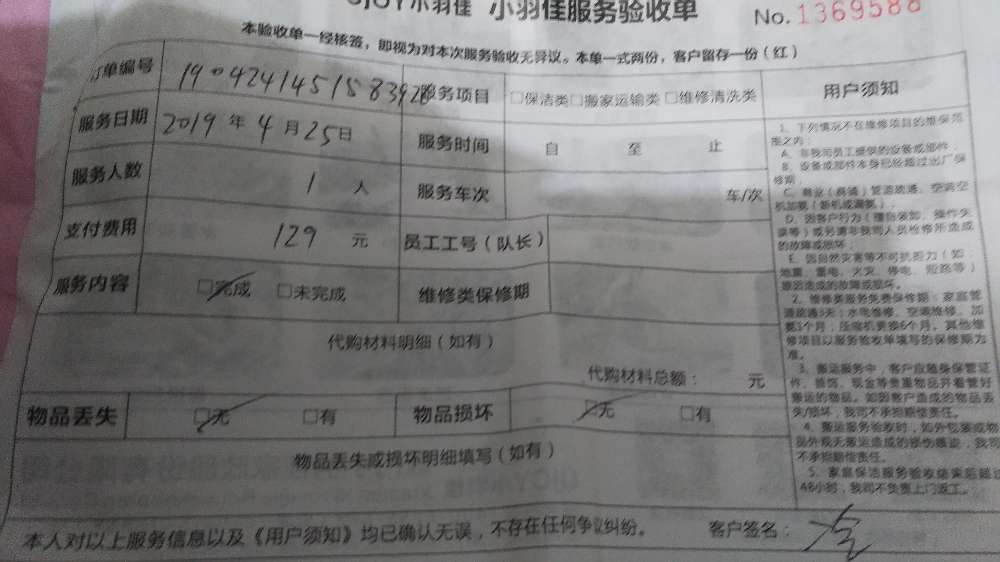 小羽佳 小羽佳服务验收单 No.1369588
本验收单一经核签，即视为对本次服务验收无异议。本单一式两份，客户留存一份（红）
订单编号 服务项目 □保洁类□搬家运输类□维修清洗类 用户须知
服务日期 2019年4月25日 服务时间 自 至 止
服务人数 1人 服务车次 车/次
支付费用 129元 员工工号（队长）
服务内容 □完成 □未完成 维修类保修期
代购材料明细（如有）
代购材料总额： 元
物品丢失 □无 □有 物品损坏 □无 □有
物品丢失或损坏明细填写（如有）
1、下列情况不在维修项目的维保范
围之内：
A、非我司员工提供的设备或部件；
B、设备或部件本身已经超过出厂保
修期；
C、商业（商铺）管道疏通、空调空
机加氨（新机或漏氨）；
D、因客户行为（擅自装卸、操作失
误等）或另请非我司人员检修所造成
的故障或损坏；
E、因自然灾害等不可抗拒力（如：
地震、雷电、火灾、停电、短路等）
原因造成的故障或损坏。
2、维修类服务免费保修期：家庭管
道疏通3天；水电维修、空调维修、加
氨1个月；压缩机更换6个月。其他维
修项目以服务验收单填写的保修期为
准。
3、搬运服务中，客户应随身保管证
件、首饰、现金等贵重物品并看管好
搬运的物品。如因客户造成的物品丢
失/损坏，我司不承担赔偿责任。
4、搬运服务验收时，如外包装或物
品外观无搬运造成的损伤痕迹，我司
不承担赔偿责任。
5、家庭保洁服务验收结束后超过
48小时，我司不负责上门返工。
本人对以上服务信息以及《用户须知》均已确认无误，不存在任何争议纠纷。 客户签名：